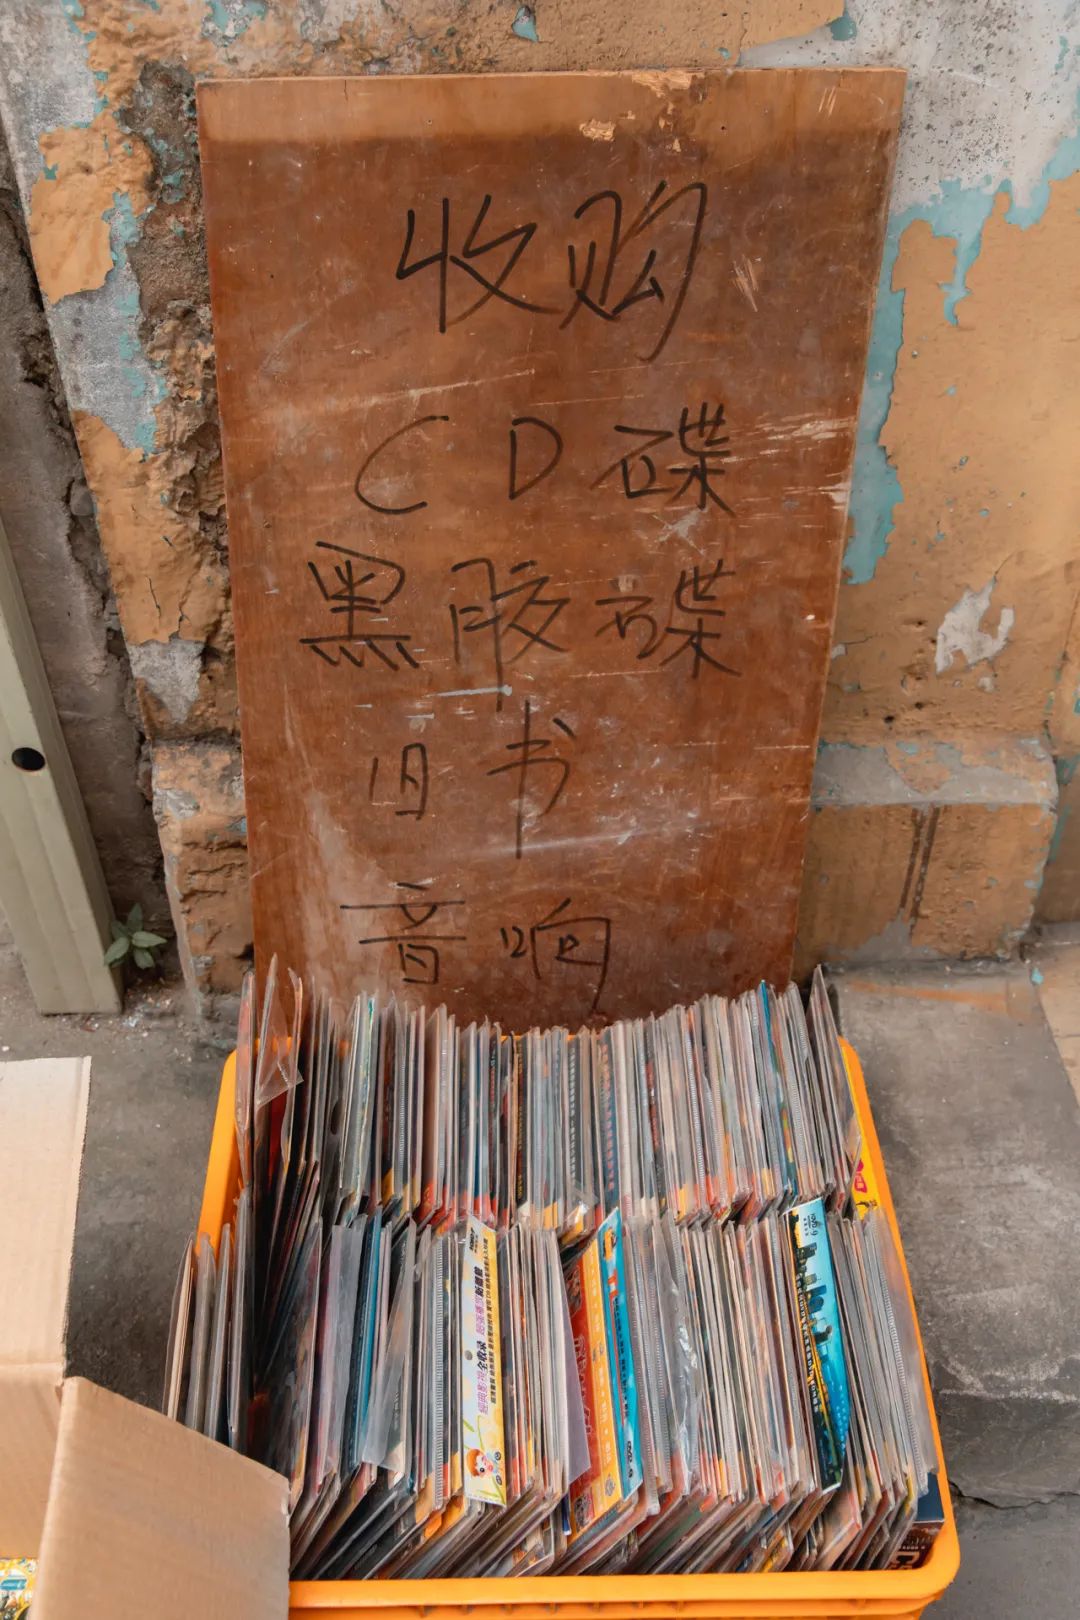 收购
CD碟
黑胶碟
旧书
音响
全收录